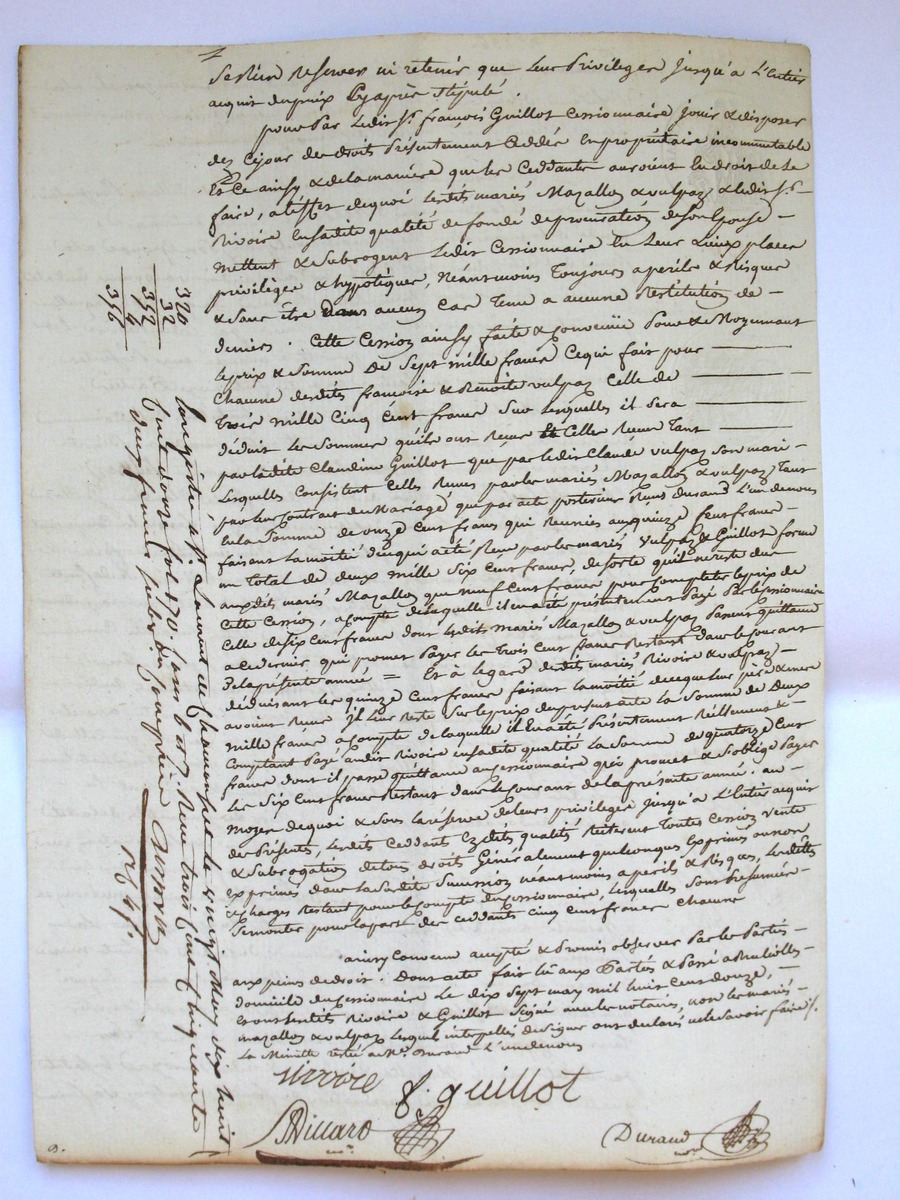 se Rien Reserver ni retenir que leur Privileges jusqu'a L'Entier
acquit du prix Cy après Stipulé.
pour Par Ledit Sr. françois Guillot Cessionnaire jouir & disposer
des cejour des droits Présentement Ceddés En propriétaire incommutable
Et Ce ainsy & de la manière que les Ceddants auroient En droit de Le
faire, a l'effet de quoi Lesdits mariés Mazallon & vulpaz & Ledit Sr.
Rivoire En sadite qualité de fondé de procuration de son Epouse
mettent & Subrogent Ledit Cessionnaire En Leur Lieux places
privilèges & hypotèques, Néantmoins Toujours a perils & Risques
& Sans être dans aucun cas Tenu a aucune Restitution de
deniers. Cette Cession ainsy faite & Convenüe Pour & Moyennant
le prix & Somme De Sept mille francs Ce qui fait pour
Chacune desdites françoise & Benoite vulpaz Celle de
Trois mille Cinq Cent francs Sur Lesquelles il sera
déduit les Sommes qu'ils ont Reçues Celles Reçues Tant
par ladite Claudine Guillot que par ledit Claude vulpaz son mari
Lesquelles Consistent Celles Reçues par les mariés Mazallon & vulpaz Tant
par leur Contrat de Mariage que par acte postérieur Reçus durand L'un de nous
En la Somme de onze Cent francs qui Reunies aux quinze Cent francs
faisant La moitié de ce qui a été Reçu par les mariés Vulpaz & Guillot forme
un Total de deux mille Six Cent francs, de sorte qu'il ne reste du
auxdits mariés Mazallon que neuf Cent francs pour Completter le prix de
Cette Cession, a Compte de laquelle il en a été présentement Payé Par le Cessionnaire
Celle de Six Cent francs dont Lesdits mariés Mazallon & vulpaz Passent quittance
a ce dernier qui promet Payer les Trois Cent francs Restant dans le Courant
de la présente année = Et à legard desdits mariés Rivoire & vulpaz
déduisant les quinze Cent francs faisant la moitié de ce que leur père & mere
avoient Reçu Il Leur Reste Sur le prix du présent acte la Somme de Deux
mille francs a Compte de laquelle il En a été Présentement Réellement &
Comptant Payé audit Rivoire en sadite qualité La Somme de quatorze Cent
francs dont il passe quittance au Cessionnaire qui promet & S'oblige Payer
les Six Cent francs Restant dans le Courant de la présente année. au
moyen de quoi & Sous la réserve de leurs privileges jusqu'à L'Entier acquit
des Présentes, Lesdits Ceddants Ezdites qualités Réiterent Toutes Cession vente
& Subrogation de tous droits Généralement quelconques Exprimés ou non
exprimés dans la Susdite Succession néantmoins a perils & Risques, les dettes
& charges Restant pour le Compte du Cessionnaire, Lesquelles Sont Présumées
Se monter pour la part des ceddants Cinq Cent francs Chacune
ainsy Convenu accepté & Promis observer Par les Parties
aux peines de droit. Dont acte fait Lu aux Parties & Passé a
domicile du Cessionnaire Le dix Sept mars mil huit Cent Douze,
Et ont Lesdits Rivoire & Guillot Signé avec les notaires, non les mariés
mazallon & vulpaz Lesquels interpellés de signer ont déclaré ne le Savoir faire /.
La Minutte restée a Me. Durand L'un de nous
rivoire f. guillot
Ricard nre.
Durand nore.
320
32
352
4
356
Enregistré a St. Laurent de Chamousset le vingt deux
huit cent douze fol. 170. Reçu trois cent cinquante
deux francs